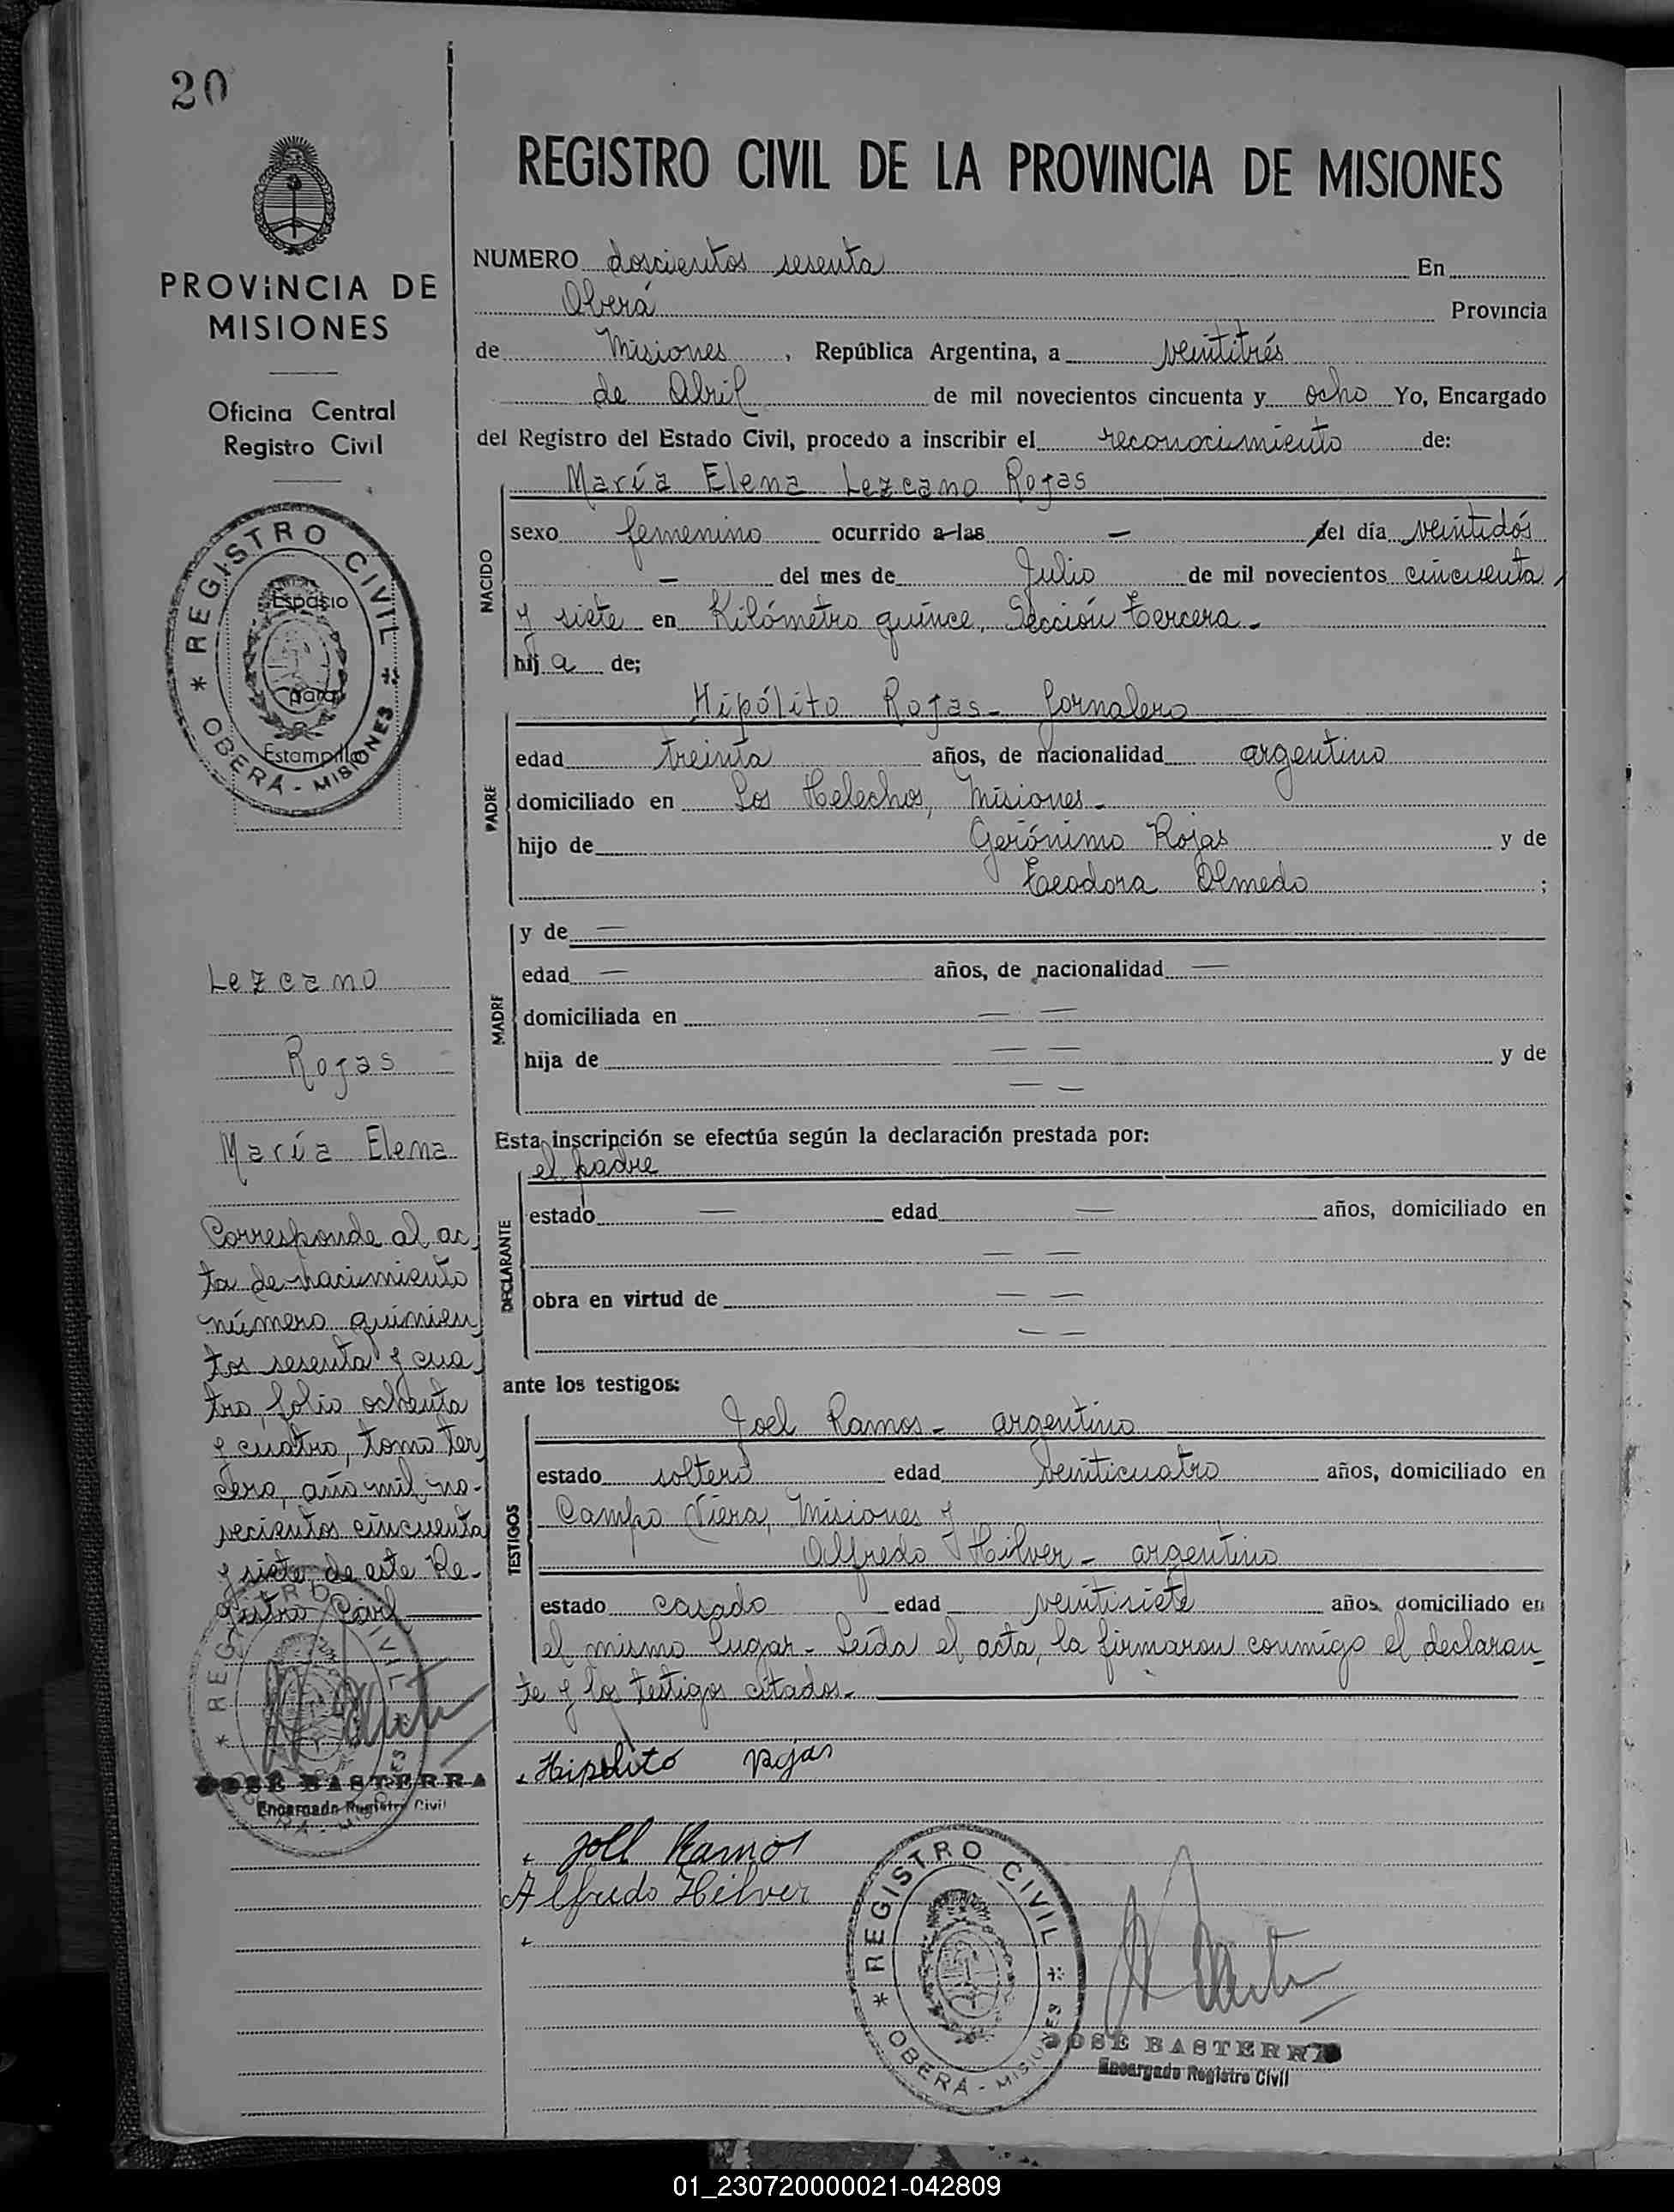 20
PROVINCIA DE
MISIONES
Oficina Central
Registro Civil
* REGISTRO CIVIL *
OBERÁ - MISIONES
Espacio
para
Estampilla
Lezcano
Rojas
María Elena
Corresponde al ac
ta de nacimiento
número quinien
tos sesenta y cua
tro, folio ochenta
y cuatro, tomo ter
cero, año mil no-
vecientos cincuenta
y siete de este Re-
gistro Civil
* REGISTRO CIVIL *
OBERÁ - MISIONES
JOSÉ BASTERRA
Encargado Registro Civil
REGISTRO CIVIL DE LA PROVINCIA DE MISIONES
NUMERO doscientos sesenta En
Oberá Provincia
de Misiones, República Argentina, a veintitrés
de Abril de mil novecientos cincuenta y ocho Yo, Encargado
del Registro del Estado Civil, procedo a inscribir el reconocimiento de:
NACIDO
María Elena Lezcano Rojas
sexo femenino ocurrido a las — del día veintidós
— del mes de Julio de mil novecientos cincuenta
y siete en Kilómetro quince, Sección tercera.-
hija de;
PADRE
Hipólito Rojas- Jornalero
edad treinta años, de nacionalidad argentino
domiciliado en Los Helechos, Misiones-
hijo de Gerónimo Rojas y de
Teodora Olmedo ;
MADRE
y de —
edad — años, de nacionalidad —
domiciliada en — —
hija de — — y de
— —
Esta inscripción se efectúa según la declaración prestada por:
DECLARANTE
el padre
estado — edad — años, domiciliado en
— —
obra en virtud de — —
— —
ante los testigos:
TESTIGOS
Joel Ramos- argentino
estado soltero edad veinticuatro años, domiciliado en
Campo Viera, Misiones y
Alfredo Hilver- argentino
estado casado edad veintisiete años, domiciliado en
el mismo lugar- Leída el acta, la firmaron conmigo el declaran-
te y los testigos citados.-
Hipolito Rojas
Joel Ramos
Alfredo Hilver
* REGISTRO CIVIL *
OBERÁ - MISIONES
JOSÉ BASTERRA
Encargado Registro Civil
01_230720000021-042809